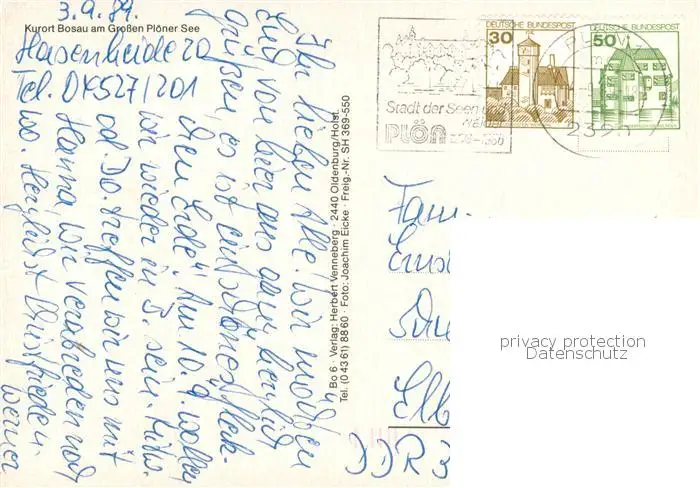 3.9.84.
Kurort Bosau am Großen Plöner See
Hasenheide 20
Tel. 04527/201
Ihr lieben Alle. Wir möchten
Euch von hier aus ganz herzlich
grüßen, es ist ein schönes Fleck-
chen Erde. Am 10.9. wollen
wir wieder in S. sein. Mitw.
od. Do. treffen wir uns mit
Hanna, wir verabreden noch
wo. Herzlichst
Werner
Bo 6 · Verlag: Herbert Venneberg · 2440 Oldenburg/Holst.
Tel. (0 43 61) 88 60 · Foto: Joachim Eicke · Freig.-Nr. SH 369-550
Stadt der Seen und
Wälder
PLÖN
30
DEUTSCHE BUNDESPOST
50
DEUTSCHE BUNDESPOST
PLÖN
2320
Fam.
Elb
DDR
privacy protection
Datenschutz